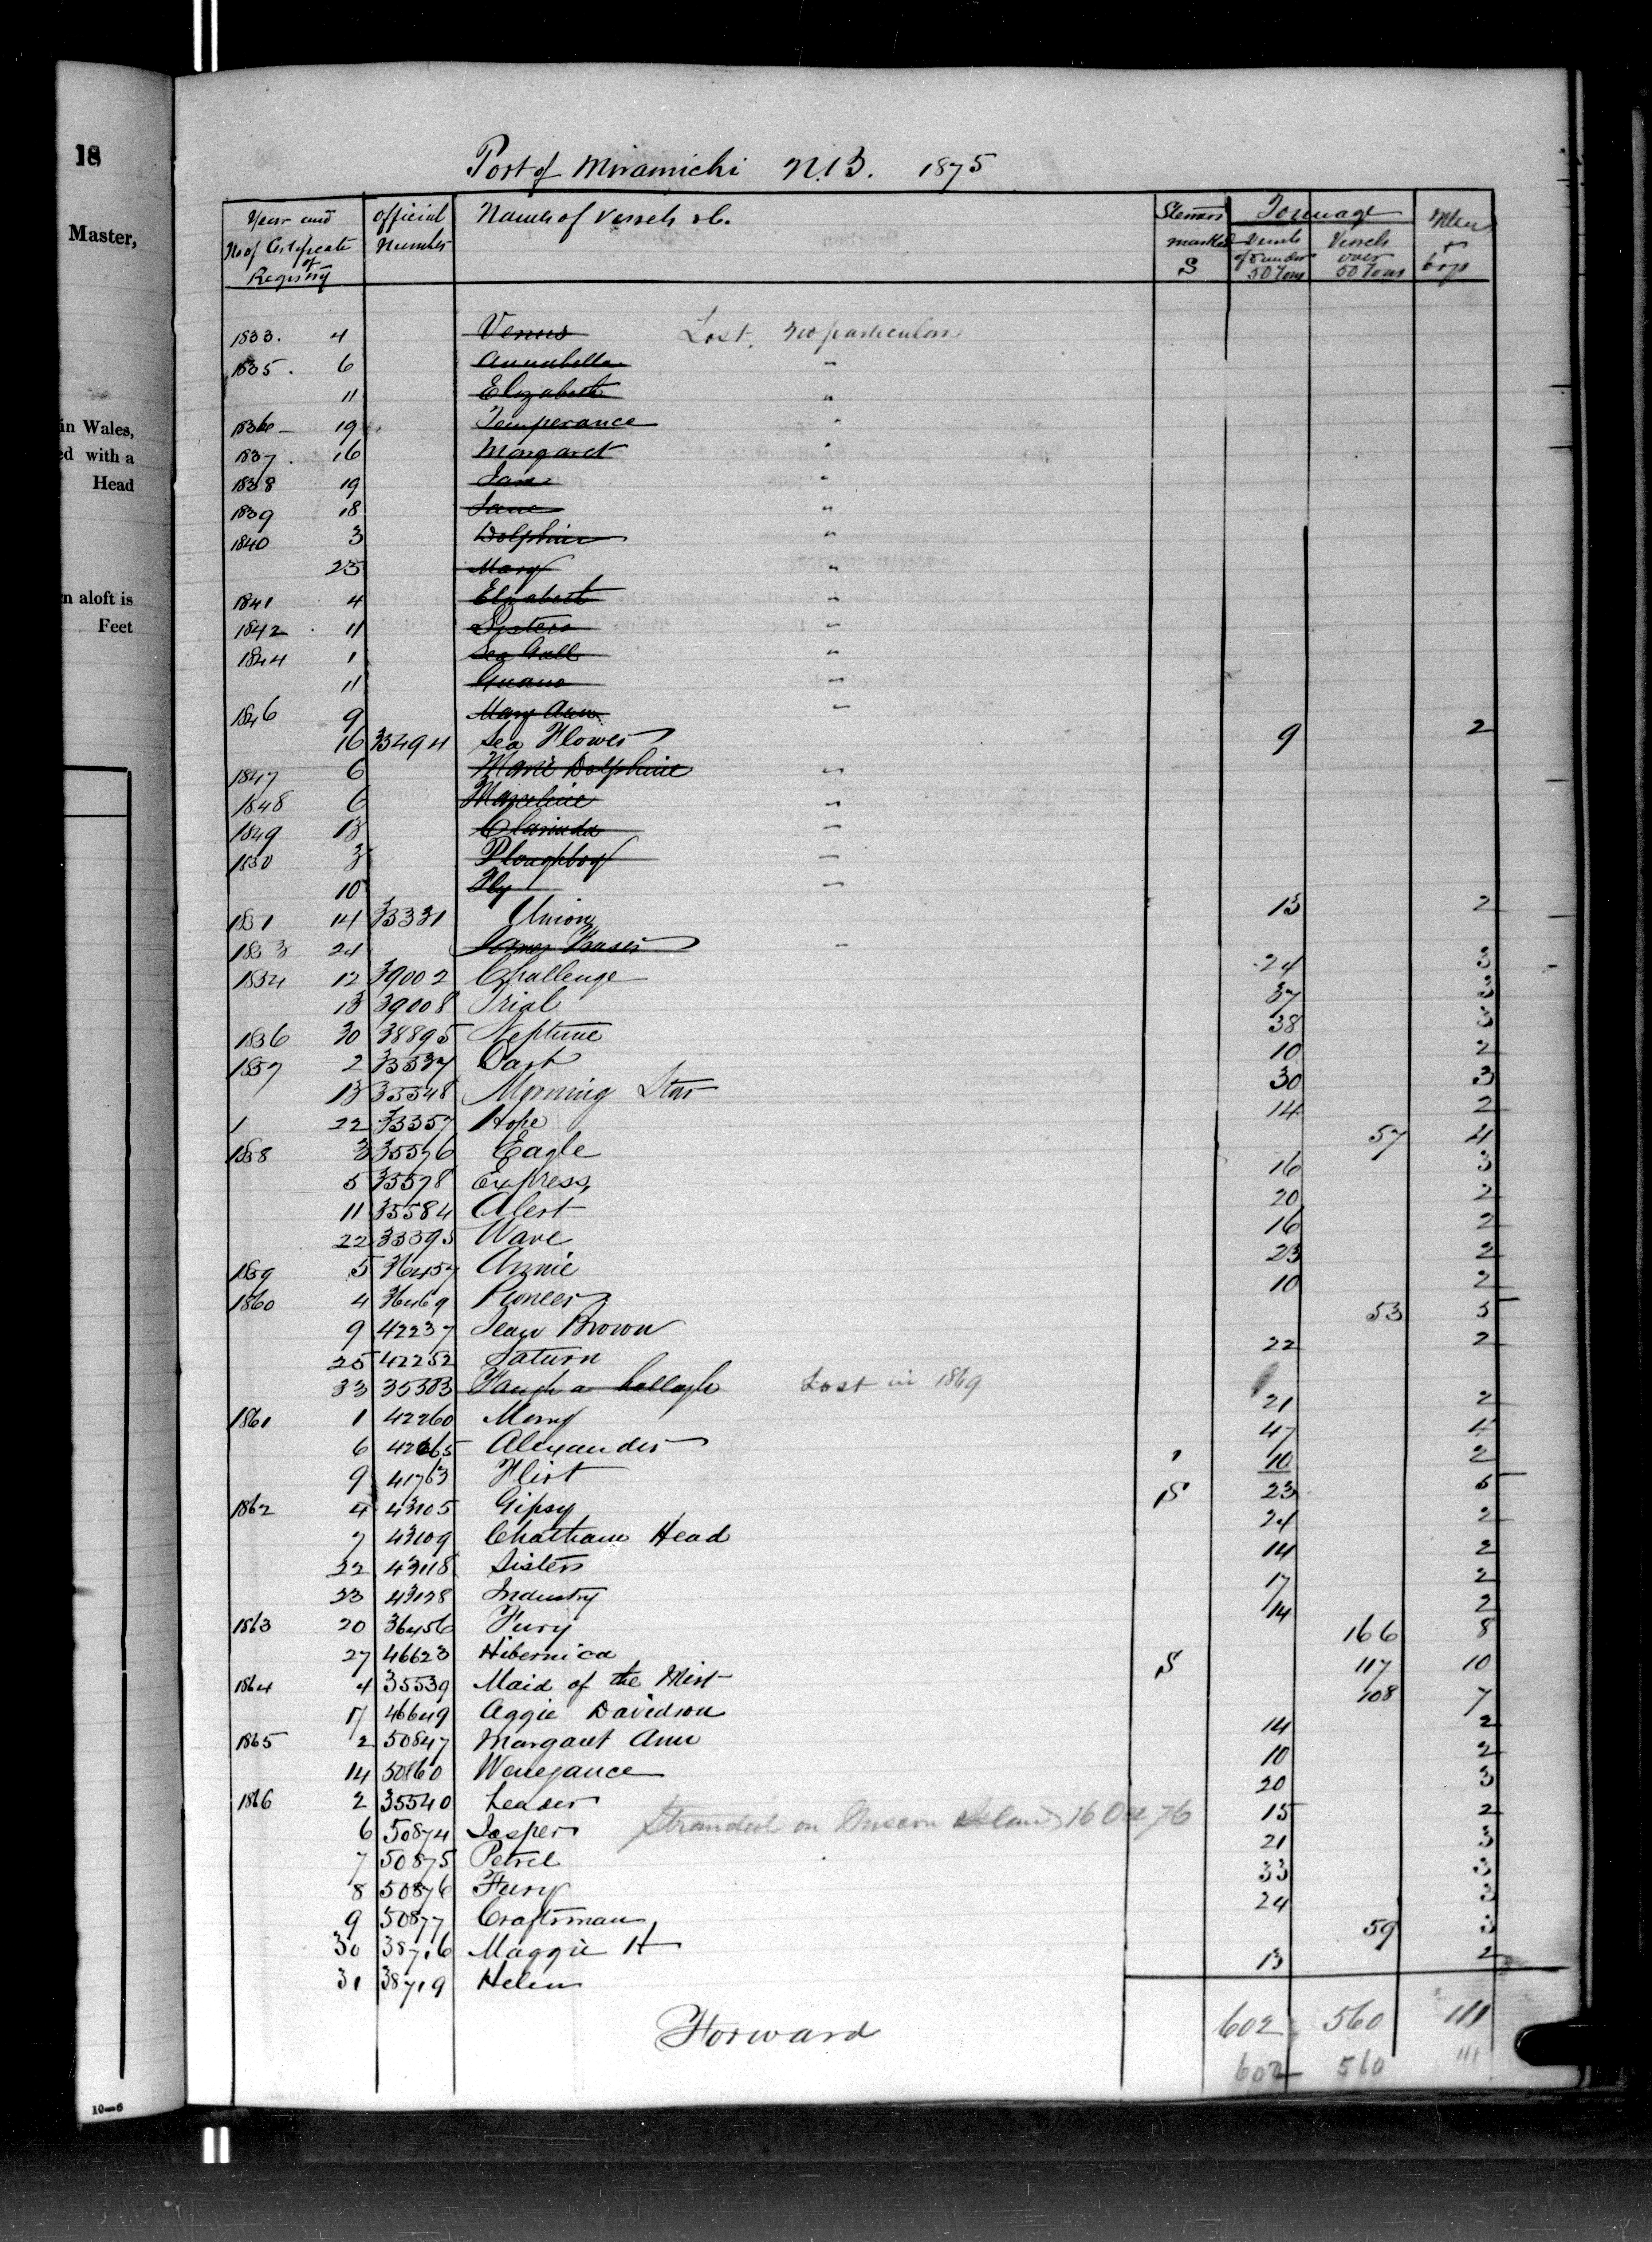 18
Master,
in Wales,
ed with a
Head
n aloft is
Feet
10—6
Port of Miramichi N.B. 1875
Year and No of Certificate of Registry
Official Number
Names of Vessels &c.
Steamers marked S
Tonnage
Vessels of & under 50 Tons
Vessels over 50 Tons
Men & boys
1833. 4 Venus Lost, no particulars
1835. 6 Annabella "
11 Elizabeth "
1836 19 Temperance "
1837. 16 Margaret "
1838 19 Jane "
1839 18 Jane "
1840 3 Dolphin "
25 Mary "
1841 4 Elizabeth "
1842 11 Sisters "
1844 1 Sea Gull "
11 Guano "
1846 9 Mary Ann "
16 33494 Sea Flower 9 2
1847 6 Marie Dolphine "
1848 6 "
1849 13 Clarinda "
1850 3 Ploughboy "
10 Fly "
1851 14 33331 Union 13 2
1853 24 James Fraser "
1854 12 39002 Challenge 24 3
13 39008 Trial 37 3
1856 30 38895 Neptune 38 3
1857 2 35537 Dart 10 2
13 35548 Morning Star 30 3
1 22 33357 Hope 14 2
1858 3 35576 Eagle 57 4
5 35578 Express 16 3
11 35584 Alert 20 2
22 35395 Wave 16 2
1859 5 36457 Annie 23 2
1860 4 36469 Pioneer 10 2
9 42237 Jean Brown 53 5
25 42252 Saturn 22 2
33 35383 Faugh a ballagh Lost in 1869
1861 1 42260 Mary 21 2
6 42265 Alexander 47 4
9 41763 Flirt 10 2
1862 4 43105 Gipsy S 23 5
7 43109 Chatham Head 24 2
22 43118 Sisters 14 2
23 43128 Industry 17 2
1863 20 36456 Fury 14 2
27 46623 Hibernica 166 8
1864 4 35539 Maid of the Mist S 117 10
17 46649 Aggie Davidson 108 7
1865 2 50847 Margaret Ann 14 2
14 50860 Wenegance 10 2
1866 2 35540 Leader 20 3
6 50874 Jasper Stranded on Island 16 Oct 76 15 2
7 50875 Petrel 21 3
8 50876 Fury 33 3
9 50877 Craftsman 24 3
30 38716 Maggie H 59 3
31 38719 Helen 13 2
Forward 602 560 111
602 560 111